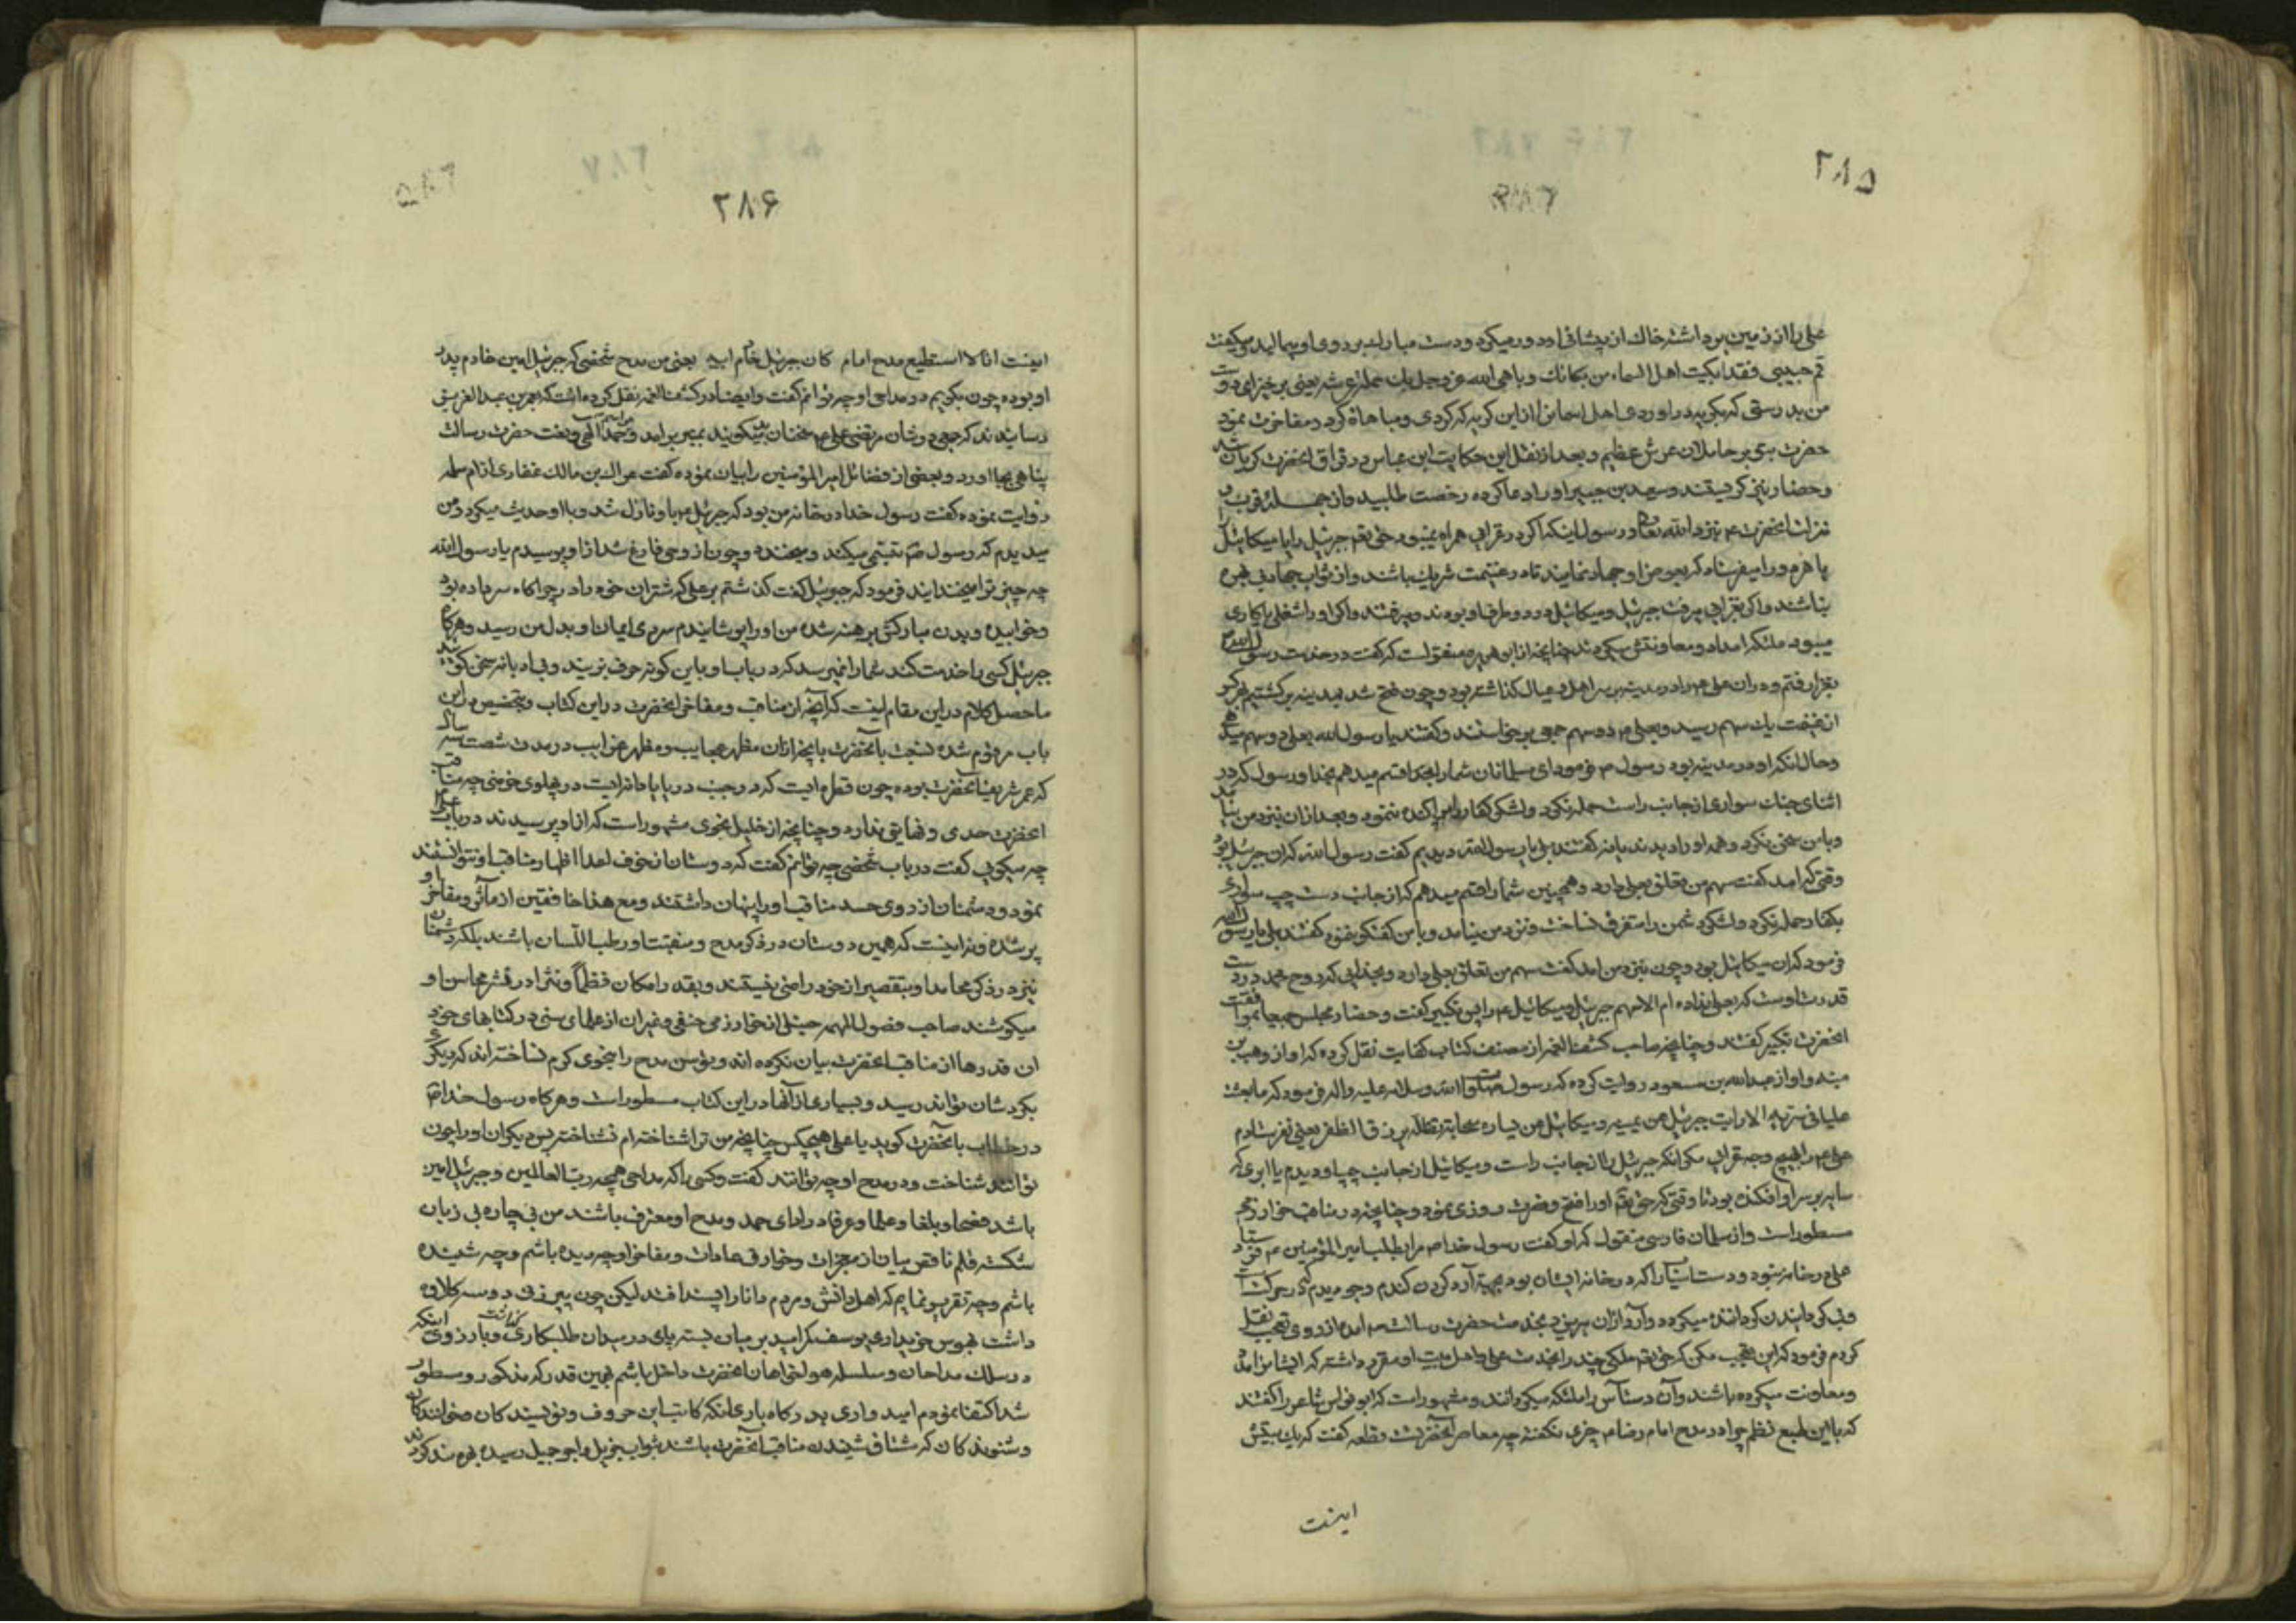 ۲۸۵
علی را از زمین برداشته خاك از پیشانی او دور میکرد و دست مبارك بر روی او میمالید و میکفت
قم حبیبی فقد ابکیت اهل السماء من بکائك و باهی الله عز و جل بك حملة عرشه یعنی برخیز ای دوست
من بدرستی که بکریه در اوردی اهل اسمانرا از این کریه که کردی و مباهاة کرد و مفاخرت نمود
حضرت بر حاملان عرش عظیم و بعد از نقل این حکایت ابن عباس در فراق انحضرت کریان شد
و حضار نیز کریستند و سعید بن جبیر او را دعا کرده رخصت طلبید و از جمله قرب و
منزلت انحضرت نزد الله تعالی و رسول اینکه اکر در غزایی همراه نمیبود حق تعالی جبرئیل را با میکائیل
یا هر دو را میفرستاد که بعوض او جهاد نمایند تا در غنیمت شریك باشند و از ثواب جهاد بی بهره
نباشند و اکر بغزایی میرفت جبرئیل و میکائیل در دو طرف او بودند و میرفتند و اکر او را شغلی یا کاری
میبود ملئکه امداد و معاونتش میکردند چنانچه از ابو هریره منقولست که کفت در خدمت رسول الله
بغزا رفتم و در ان علی را در مدینه بر سر اهل و عیال کذاشته بود و چون فتح شد بمدینه برکشتیم هر کس را
از غنیمت یك سهم رسید و بعلی دو سهم جمعی برخاستند و کفتند یا رسول الله بعلی دو سهم میدهی
و حال انکه او در مدینه بود رسول فرمود ای مسلمانان شما را بخدا قسم میدهم بخدا و رسول که در
اثنای جنك سواری از جانب راست حمله نکرد و لشکر کفار را پراکنده ننمود و بعد از ان نزد من نیامد
و با من سخن نکرد و همه او را دیدند یا نه کفتند بلی یا رسول الله دیدیم کفت رسول الله که ان جبرئیل بود
وقتی که امد کفت سهم من تعلق بعلی دارد و همچنین شما را قسم میدهم که از جانب دست چپ سواری
بکفار حمله نکرد و لشکر دشمن را متفرق نساخت و نزد من نیامد و با من کفتکو ننمود کفتند بلی یا رسول الله
فرمود که ان میکائیل بود و چون نزد من امد کفت سهم من تعلق بعلی دارد و بخدایی که روح محمد در دست
قدرت اوست که بعلی نداده ام الا سهم جبرئیل و میکائیل را پس تکبیر کفت و حضار مجلس جمیعا بموافقت
انحضرت تکبیر کفتند و چنانچه صاحب کشف الغمه از مصنف کتاب کفایت نقل کرده که او از وهب بن
منبه و او از عبد الله بن مسعود روایت کرده که رسول صلوات الله و سلامه علیه و اله فرمود که ما بعثت
علیا فی سریة الا رایت جبرئیل عن یمینه و میکائیل عن یساره و سحابة تظله یرزق الظفر یعنی نفرستادم
علی را بهیچ وجه بغزایی مکر انکه جبرئیل را از جانب راست و میکائیل از جانب چپ او دیدم با ابری که
سایه بر سر او افکنده بود تا وقتی که حق تعالی او را فتح و نصرت روزی نمود و چنانچه در مناقب خوارزمی
مسطور است و از سلمان فارسی منقول که او کفت رسول خدا مرا بطلب امیر المؤمنین فرستاد
علی در خانه نبود و دست اسیا را که در خانه ایشان بود بجهة آرد کردن کندم و جو دیدم که در حرکتست
و بی کردانیدن کردانند میکردد و آرد از ان میریزد بخدمت حضرت رسالت امده از روی تعجب نقل
کردم فرمود که این عجب مکن که حق تعالی ملکی چند را بخدمت علی و اهل بیت او مقرر داشته که ایشانرا امداد
و معاونت میکرده باشند و آن دستآس را ملئکه میکردانند و مشهور است که ابو نواس شاعر را کفتند
که با این طبع نظم چرا در مدح امام رضا چیزی نکفته چه معاصر انحضرتست قطعه کفت که یك بیتش
اینست
۲۸۶
اینست انا لا استطیع مدح امام کان جبرئیل خادم ابیه یعنی من مدح شخصی که جبرئیل امین خادم پدر
او بوده چون بکویم و در مداحی او چه توانم کفت و ایضا در کشف الغمه نقل کرده است که بعمر بن عبد العزیز
رسانیدند که جمعی در شان مرتضی علی سخنان بد میکویند بمنبر برامد و مراسم حمد الهی و نعت حضرت رسالت
پناهی بجا اورد و بعضی از فضائل امیر المؤمنین را بیان نموده کفت عراك بن مالك غفاری از ام سلمه
روایت نموده کفت رسول خدا در خانه من بود که جبرئیل باو نازل شد و با او حدیث میکرد و من
میدیدم که رسول تبسم میکند و میخندد و چون از وحی فارغ شد از او پرسیدم یا رسول الله
چه چیز ترا میخندانید فرمود که جبرئیل کفت کذشتم بر علی که شتران خود را در چراکاه سر داده بود
و خوابیده و بدن مبارکش برهنه شده من او را پوشانیدم سردی ایمان او بدل من رسید و هرکاه
جبرئیل کسی را خدمت کند شما را نمیرسد که در باب او باین کونه حرف بزنید و بی ادبانه سخن کویند
ما حصل کلام در این مقام اینست که آنچه از مناقب و مفاخر انحضرت در این کتاب و بتخصیص در این
باب مرقوم شده نسبت بآنحضرت بآنچه از ان مظهر عجایب و مظهر غرایب در مدت شصت و سه سال
که عمر شریف انحضرت بوده چون قطره ایست که در جنب دریا یا دانه ایست در پهلوی خرمنی چه مناقب
انحضرت حدی و نهایتی ندارد و چنانچه از خلیل نحوی مشهور است که از او پرسیدند در باب علی
چه میکویی کفت در باب شخصی چه توانم کفت که دوستان از خوف اعدا اظهار مناقب او نتوانستند
نمود و دشمنان از روی حسد مناقب او را پنهان داشتند و مع هذا خافقین از مآثر و مفاخر او
پر شده و نه اینست که همین دوستان در ذکر مدح و منقبت او رطب اللسان باشند بلکه دشمنان
نیز در ذکر محامد او بتقصیر از خود راضی نیستند و بقدر امکان نظما و نثرا در نشر محاسن او
میکوشند صاحب فصول المهمه حنبلی از خوارزمی حنفی و غیر ان از علمای سنی در کتابهای خود
ان قدرها از مناقب انحضرت بیان نکرده اند و توسن مدح را بنحوی کرم نساخته اند که دیکری
بکردشان تواند رسید و بسیاری از آنها در این کتاب مسطور است و هرکاه رسول خدا
در خطاب بآنحضرت کوید یا علی هیچکس چنانچه من ترا شناخته ام نشناخته پس دیکران او را چون
توانند شناخت و در مدح او چه توانند کفت و کسی را که مداحی همچه رب العالمین و جبرئیل امین
باشد فصحا و بلغا و علما و عرفا در ادای حمد و مدح او معترف باشند من بی چاره بی زبان
شکسته قلم ناقص بیان از معجزات و خوارق عادات و مفاخر او چه دیده باشم و چه شنیده
باشم و چه تقریر نمایم که اهل دانش و مردم دانا را پسند افتد لیکن چون پیر زنی که دو سه کلاوه
داشت بهوس خریداری یوسف کرامید بر میان بسته پای در میدان طلبکاری و بارزوی اینکه
در سلك مداحان و سلسله هواخواهان انحضرت داخل باشم بهمین قدر که مذکور و مسطور
شد اکتفا نمودم امید واری بدرکاه باری انکه کاتب این حروف و نویسندکان و خوانندکان
و شنوندکان که مشتاق شنیدن مناقب آنحضرت باشند بثواب جزیل و اجر جمیل رسیده بهره مند کردند